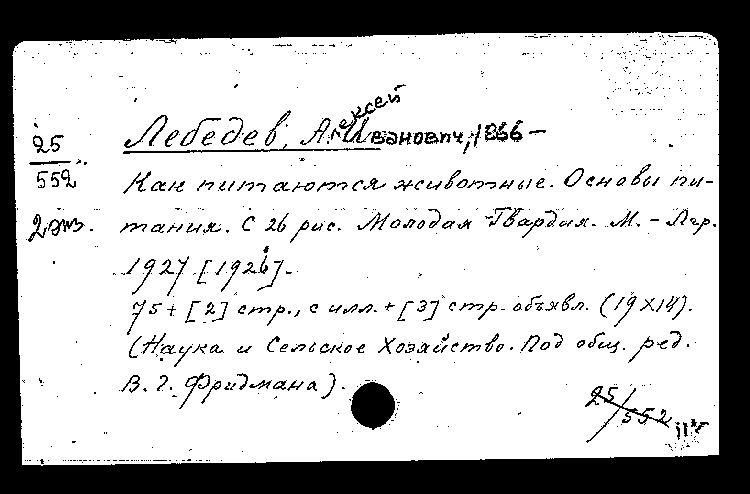 25
552
2 экз.
Лебедев, Алексей Иванович, 1866 –
Как питаются животные. Основы пи-
тания. С 26 рис. Молодая Гвардия. М. – Лгр.
1927 [1926].
75 + [2] стр., с илл. + [3] стр. объявл. (19X14).
(Наука и Сельское Хозяйство. Под общ. ред.
В. Г. Фридмана).
25/552